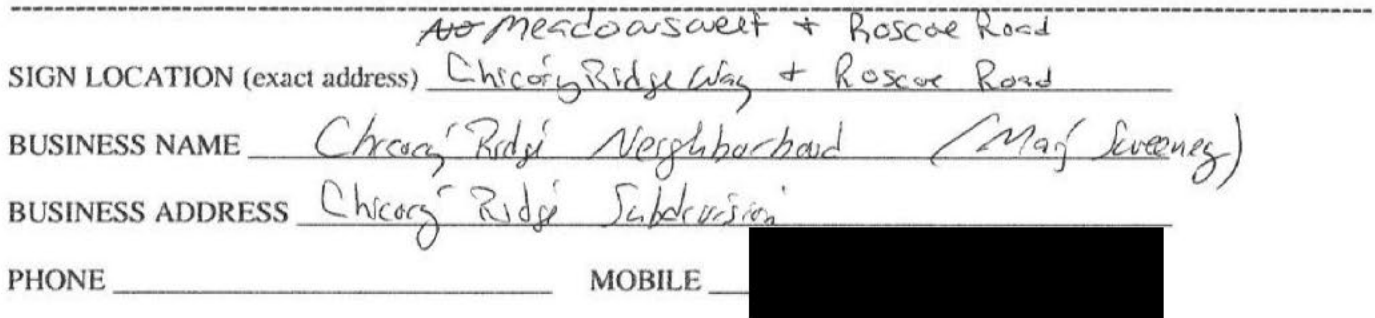 Meadowsweet + Roscoe Road
SIGN LOCATION (exact address) Chicory Ridge Way + Roscoe Road
BUSINESS NAME Chicory Ridge Neighborhood (Mary Sweeney)
BUSINESS ADDRESS Chicory Ridge Subdivision
PHONE MOBILE